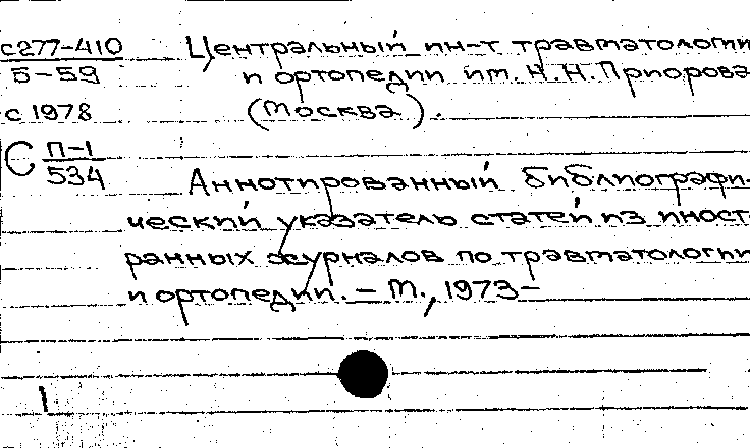 с277-410 Центральный ин-т травматологии
Б-59 и ортопедии им. Н.Н.Приорова
с 1978 (Москва).
С П-1
534 Аннотированный библиографи-
ческий указатель статей из иност
ранных журналов по травматологии
и ортопедии. - М., 1973-
1